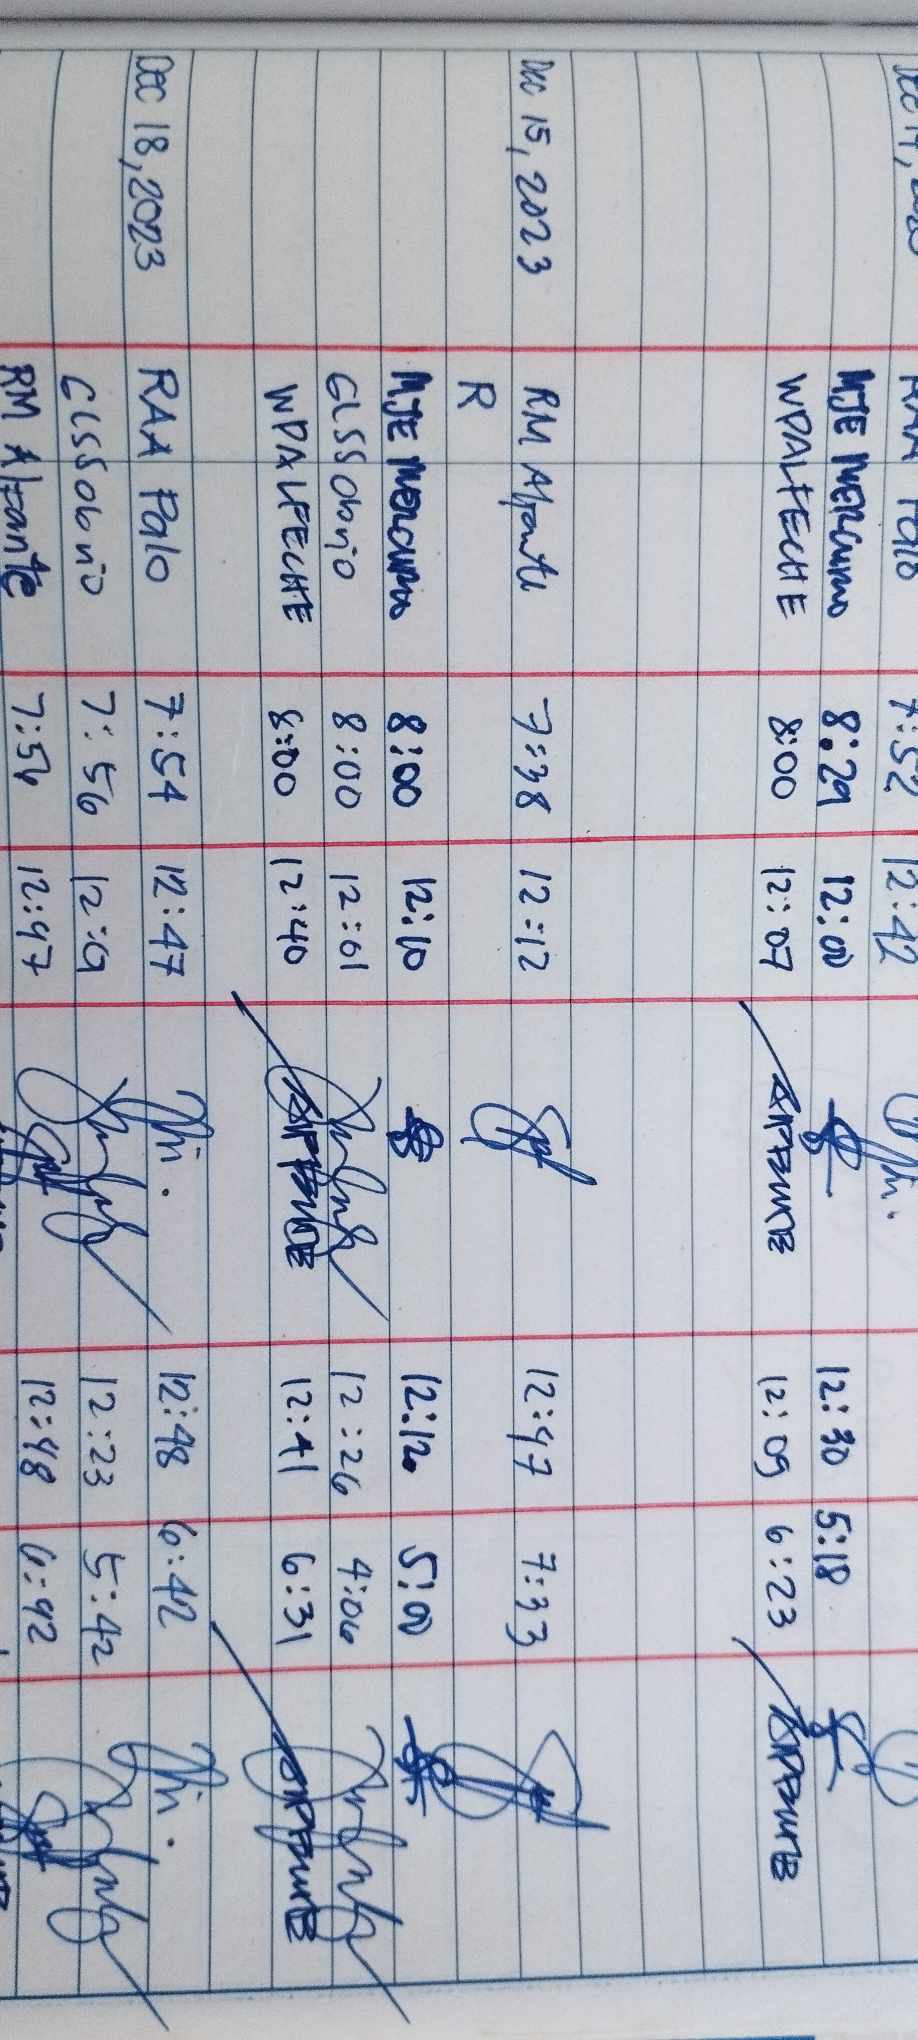 RAA Palo 7:52 12:42
MJE Mercurio 8:29 12:00 12:30 5:18
WPALFECHE 8:00 12:07 12:09 6:23
Dec 15, 2023 RM Alfante 7:38 12:12 12:47 7:33
R
MJE Mercurio 8:00 12:10 12:120 5:00
GLSSobrio 8:00 12:01 12:26 4:06
WPALFECHE 8:00 12:40 12:41 6:31
Dec 18, 2023 RAA Palo 7:54 12:47 12:48 6:42
GLSSobrio 7:56 12:19 12:23 5:42
RM Alfante 7:54 12:47 12:48 6:42